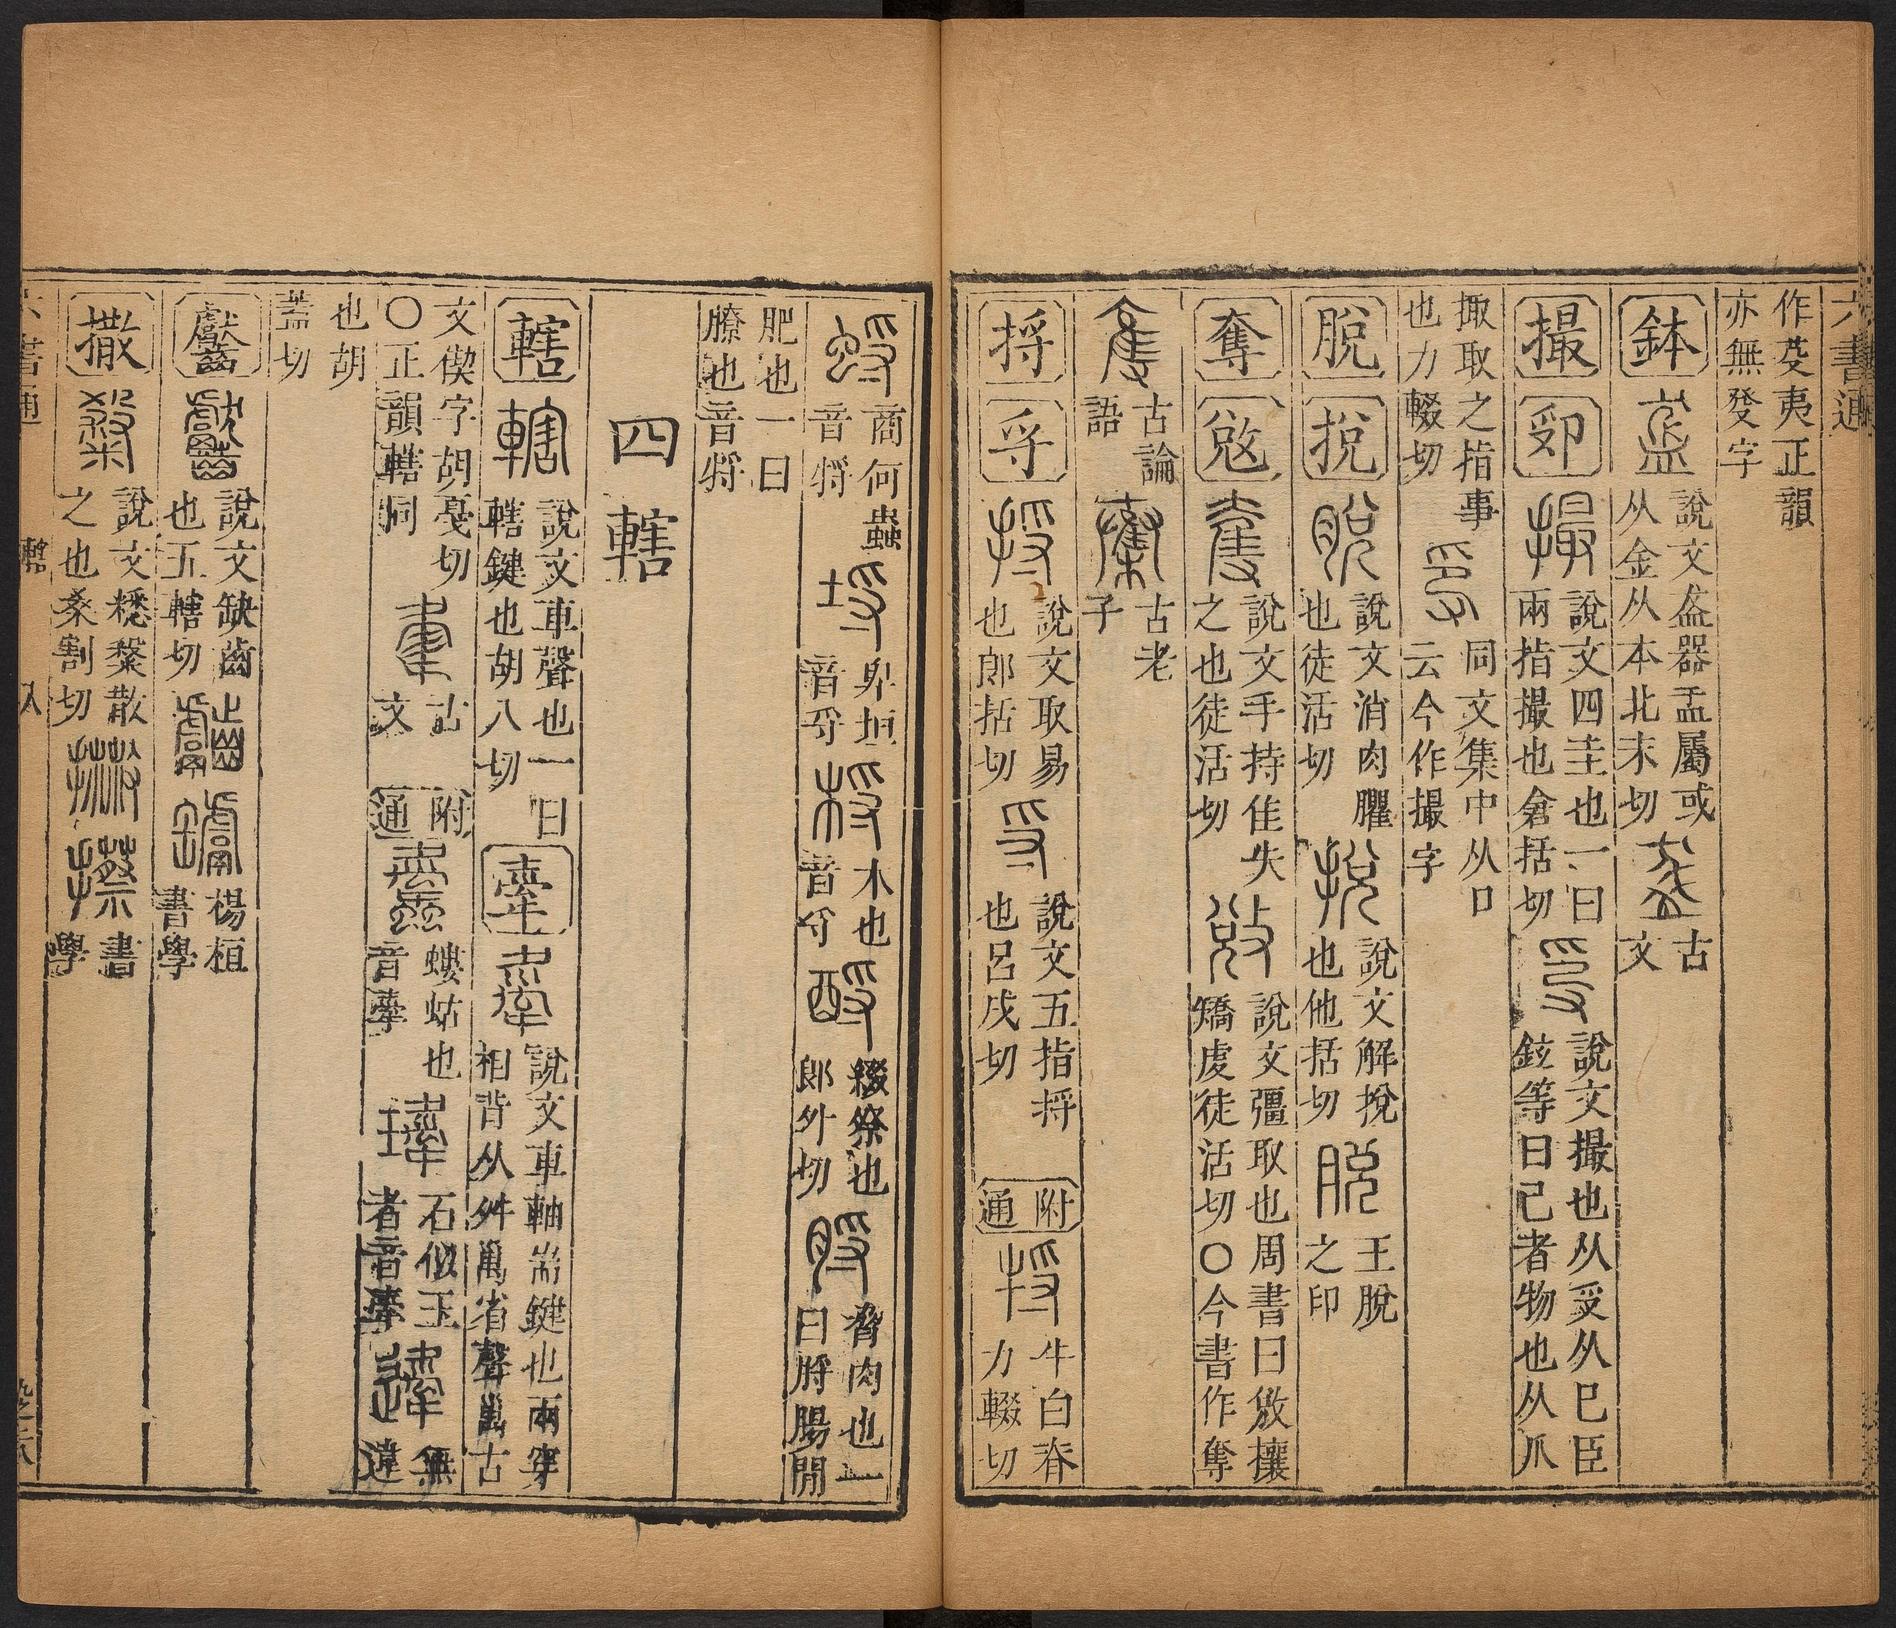 六書通
作茇夷正韻亦無發字
鉢 說文盋器盂屬或从金从本北末切 古文
撮 說文四圭也一曰兩指撮也倉括切 說文撮也从𠬪从巳臣鉉等曰巳者物也从爪
掫取之指事也力輟切 同文集中从口云今作撮字
脫 挩 說文消肉臞也徒活切 說文解挩也他括切 王脫之印
奪 敓 說文手持隹失之也徒活切 說文彊取也周書曰敓攘矯虔徒活切○今書作奪
古論語 古老子
捋 寽 說文取易也郎括切 說文五指捋也呂戌切 附通 牛白脊力輟切
商何蟲音捋 卑垣音寽 木也音寽 餟祭也郎外切 脅肉也一曰脟腸間
肥也一曰膫也音捋
四轄
轄 說文車聲也一曰轄鍵也胡八切 舝 說文車軸耑鍵也兩穿相背从舛省聲古
文偰字胡戛切○正韻轄同 古文 附通 螻蛄也音舝 石似玉者音舝 無違
也胡蓋切
齾 說文缺齒也五轄切 楊桓書學
撒 說文散之也桑割切 書學